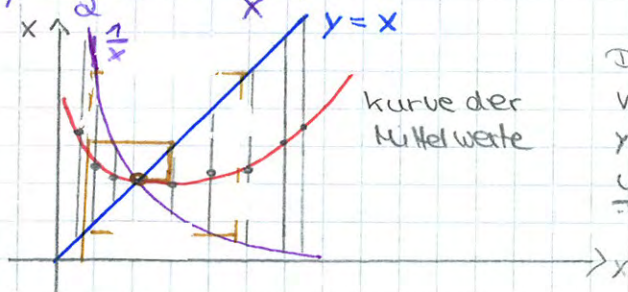 2
x
x
1/x
y = x
Kurve der
Mittelwerte
x